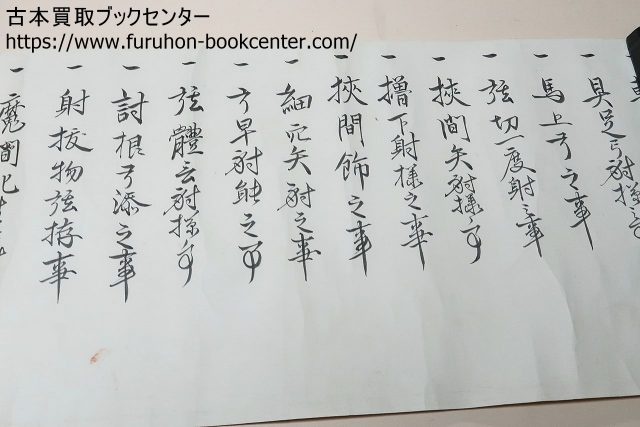 古本買取ブックセンター
https://www.furuhon-bookcenter.com/
一 具足弓射様之事
一 馬上弓之事
一 弦切一度射之事
一 挟間矢射様事
一 櫓下射様之事
一 挟間飾之事
一 細穴矢射之事
一 弓早射能之事
一 弦體云射様事
一 討根弓添之事
一 射抜物弦拵事
一 魔間